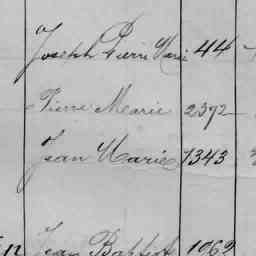 Joseph Pierre Marie 44
Pierre Marie 2392
Jean Marie 1343
Jean Baptist 1069